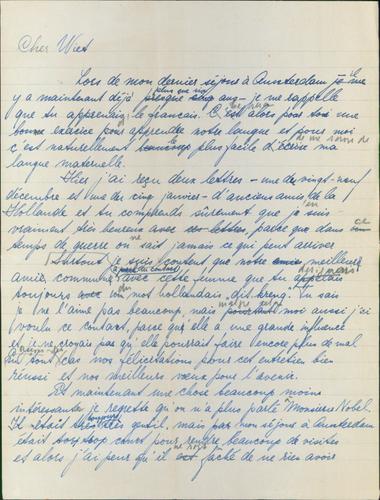 Cher Wiet
Lors de mon dernier séjour à Amsterdam je me
plus que six
y a maintenant déjà presque cinq ans - je me rappelle
que tu apprenais le français. C'est alors pour toi une
bonne exercice pour apprendre notre langue et pour moi
de me servir de
c'est naturellement beaucoup le plus facile d'écrire ma
langue maternelle.
Hier, j'ai reçu deux lettres - une du vingt-neuf
décembre et une du cinq janvier - d'anciens amis de la
Hollande et tu comprends sûrement que je suis
vraiment très heureux avec ces lettres, parce que dans ce
temps de guerre on ne sait jamais ce qui peut arriver
Surtout je suis content que notre amie meilleure
a pris du contact
amie, commune avec cette femme que tu appelais
toujours avec un mot hollandais, dit "kreng". Tu sais
je ne l'aime pas beaucoup, mais pourtant moi aussi j'ai
voulu ce contact, parce qu'elle a une grande influence
et je ne croyais pas qu'elle pourrait faire encore plus de mal
En tous cas nos félicitations pour cet entretien bien
réussi et nos meilleurs vœux pour l'avenir.
Et maintenant une chose beaucoup moins
intéressante, je regrette qu'on n'a plus parlé Monsieur Nobel.
toujours
Il était très gentil, mais pas mon séjour à Amsterdam
était trop court pour rendre beaucoup de visites
et alors j'ai peur qu'il est fâché de ne rien avoir